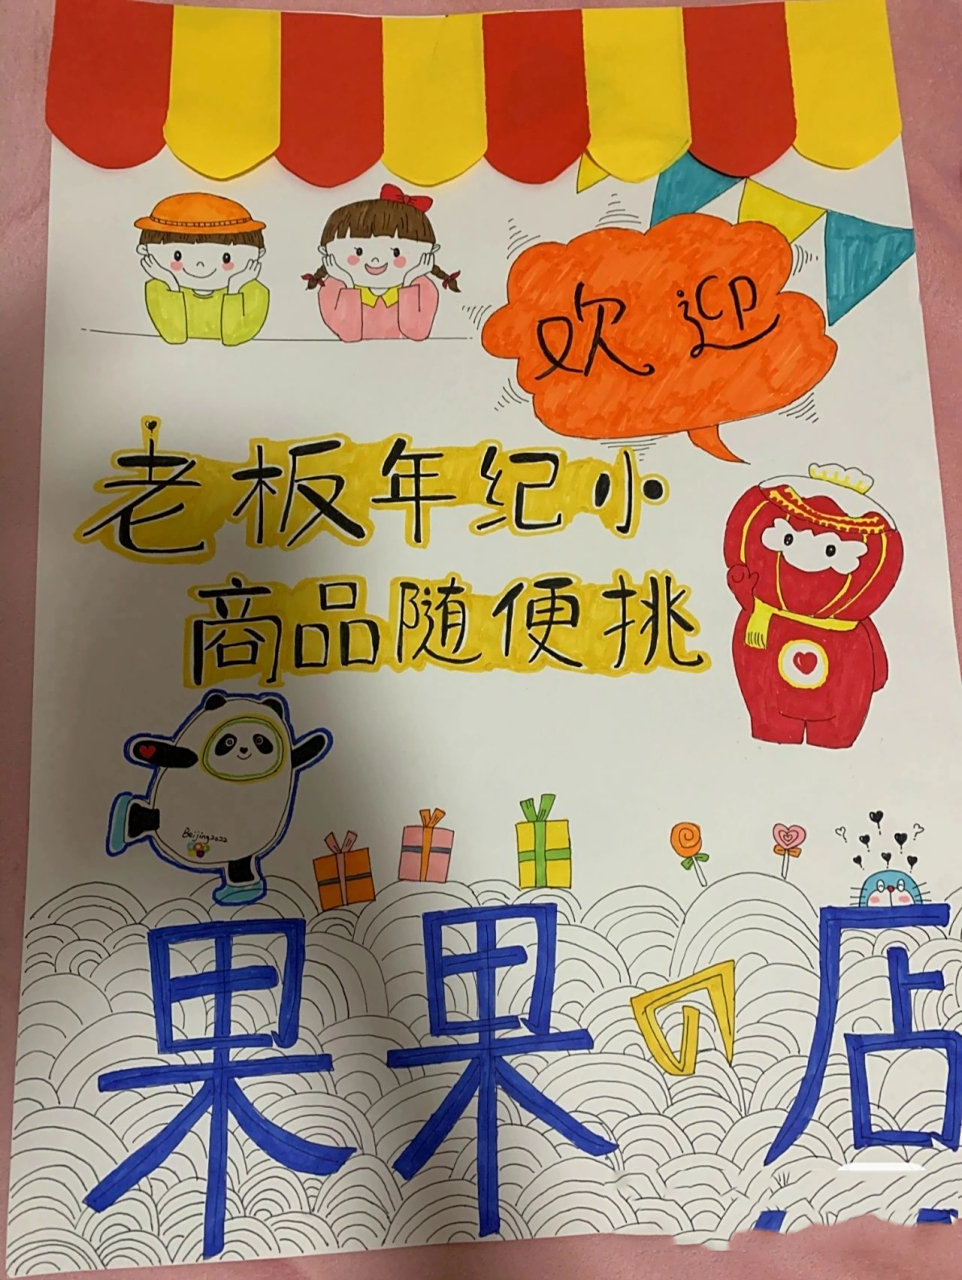 欢迎
老板年纪小
商品随便挑
Beijing2022
果果の店